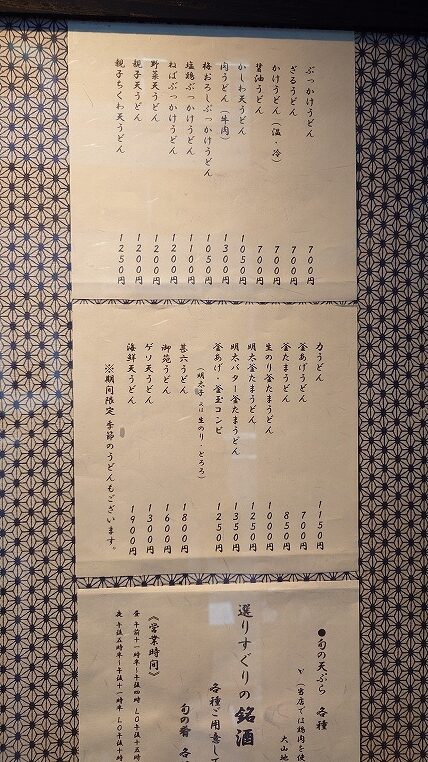 ぶっかけうどん 700円
ざるうどん 700円
かけうどん（温・冷） 700円
醤油うどん 700円
かしわ天うどん 1050円
肉うどん（牛肉） 1300円
梅おろしぶっかけうどん 1050円
塩鶏ぶっかけうどん 1100円
ねばぶっかけうどん 1200円
野菜天うどん 1200円
親子天うどん 1200円
親子ちくわ天うどん 1250円
力うどん 1150円
釜あげうどん 700円
釜たまうどん 850円
生のり釜たまうどん 1000円
明太釜たまうどん 1250円
明太バター釜たまうどん 1350円
釜あげ・釜玉コンビ 1250円
（明太子 又は 生のり・とろろ）
甚六うどん 1800円
御苑うどん 1600円
ゲソ天うどん 1300円
海鮮天うどん 1900円
※期間限定 季節のうどんもございます。
●旬の天ぷら 各種
（当店では鶏肉を使
大山地
選りすぐりの銘酒
各種ご用意して
旬の肴 各
《営業時間》
昼 午前十一時半〜午後四時 LO午後
夜 午後五時半〜午後十一時半 LO午後十